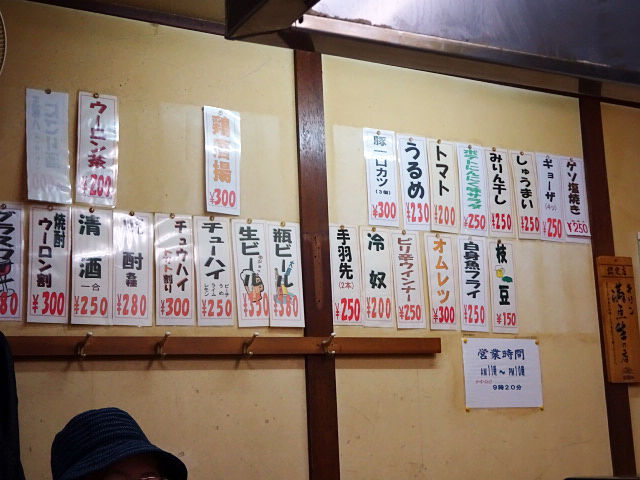 ウーロン茶
¥200
¥300
¥380
焼酎
ウーロン割
¥300
清酒
一合
¥250
酎
¥280
チュウハイ
¥300
チューハイ
ピーチ
うめ
ライム
レモン
¥250
生ビール
¥350
瓶ビール
¥380
豚一口カツ
(3個)
¥300
うるめ
¥230
トマト
¥200
¥250
みりん干し
¥250
しゅうまい
¥250
ギョーザ
¥250
ゲソ塩焼き
¥250
手羽先
(2本)
¥250
冷奴
¥200
ピリ辛ウインナー
¥250
オムレツ
¥300
白身魚フライ
¥250
枝豆
¥150
営業時間
AM11時～PM10時
9時20分